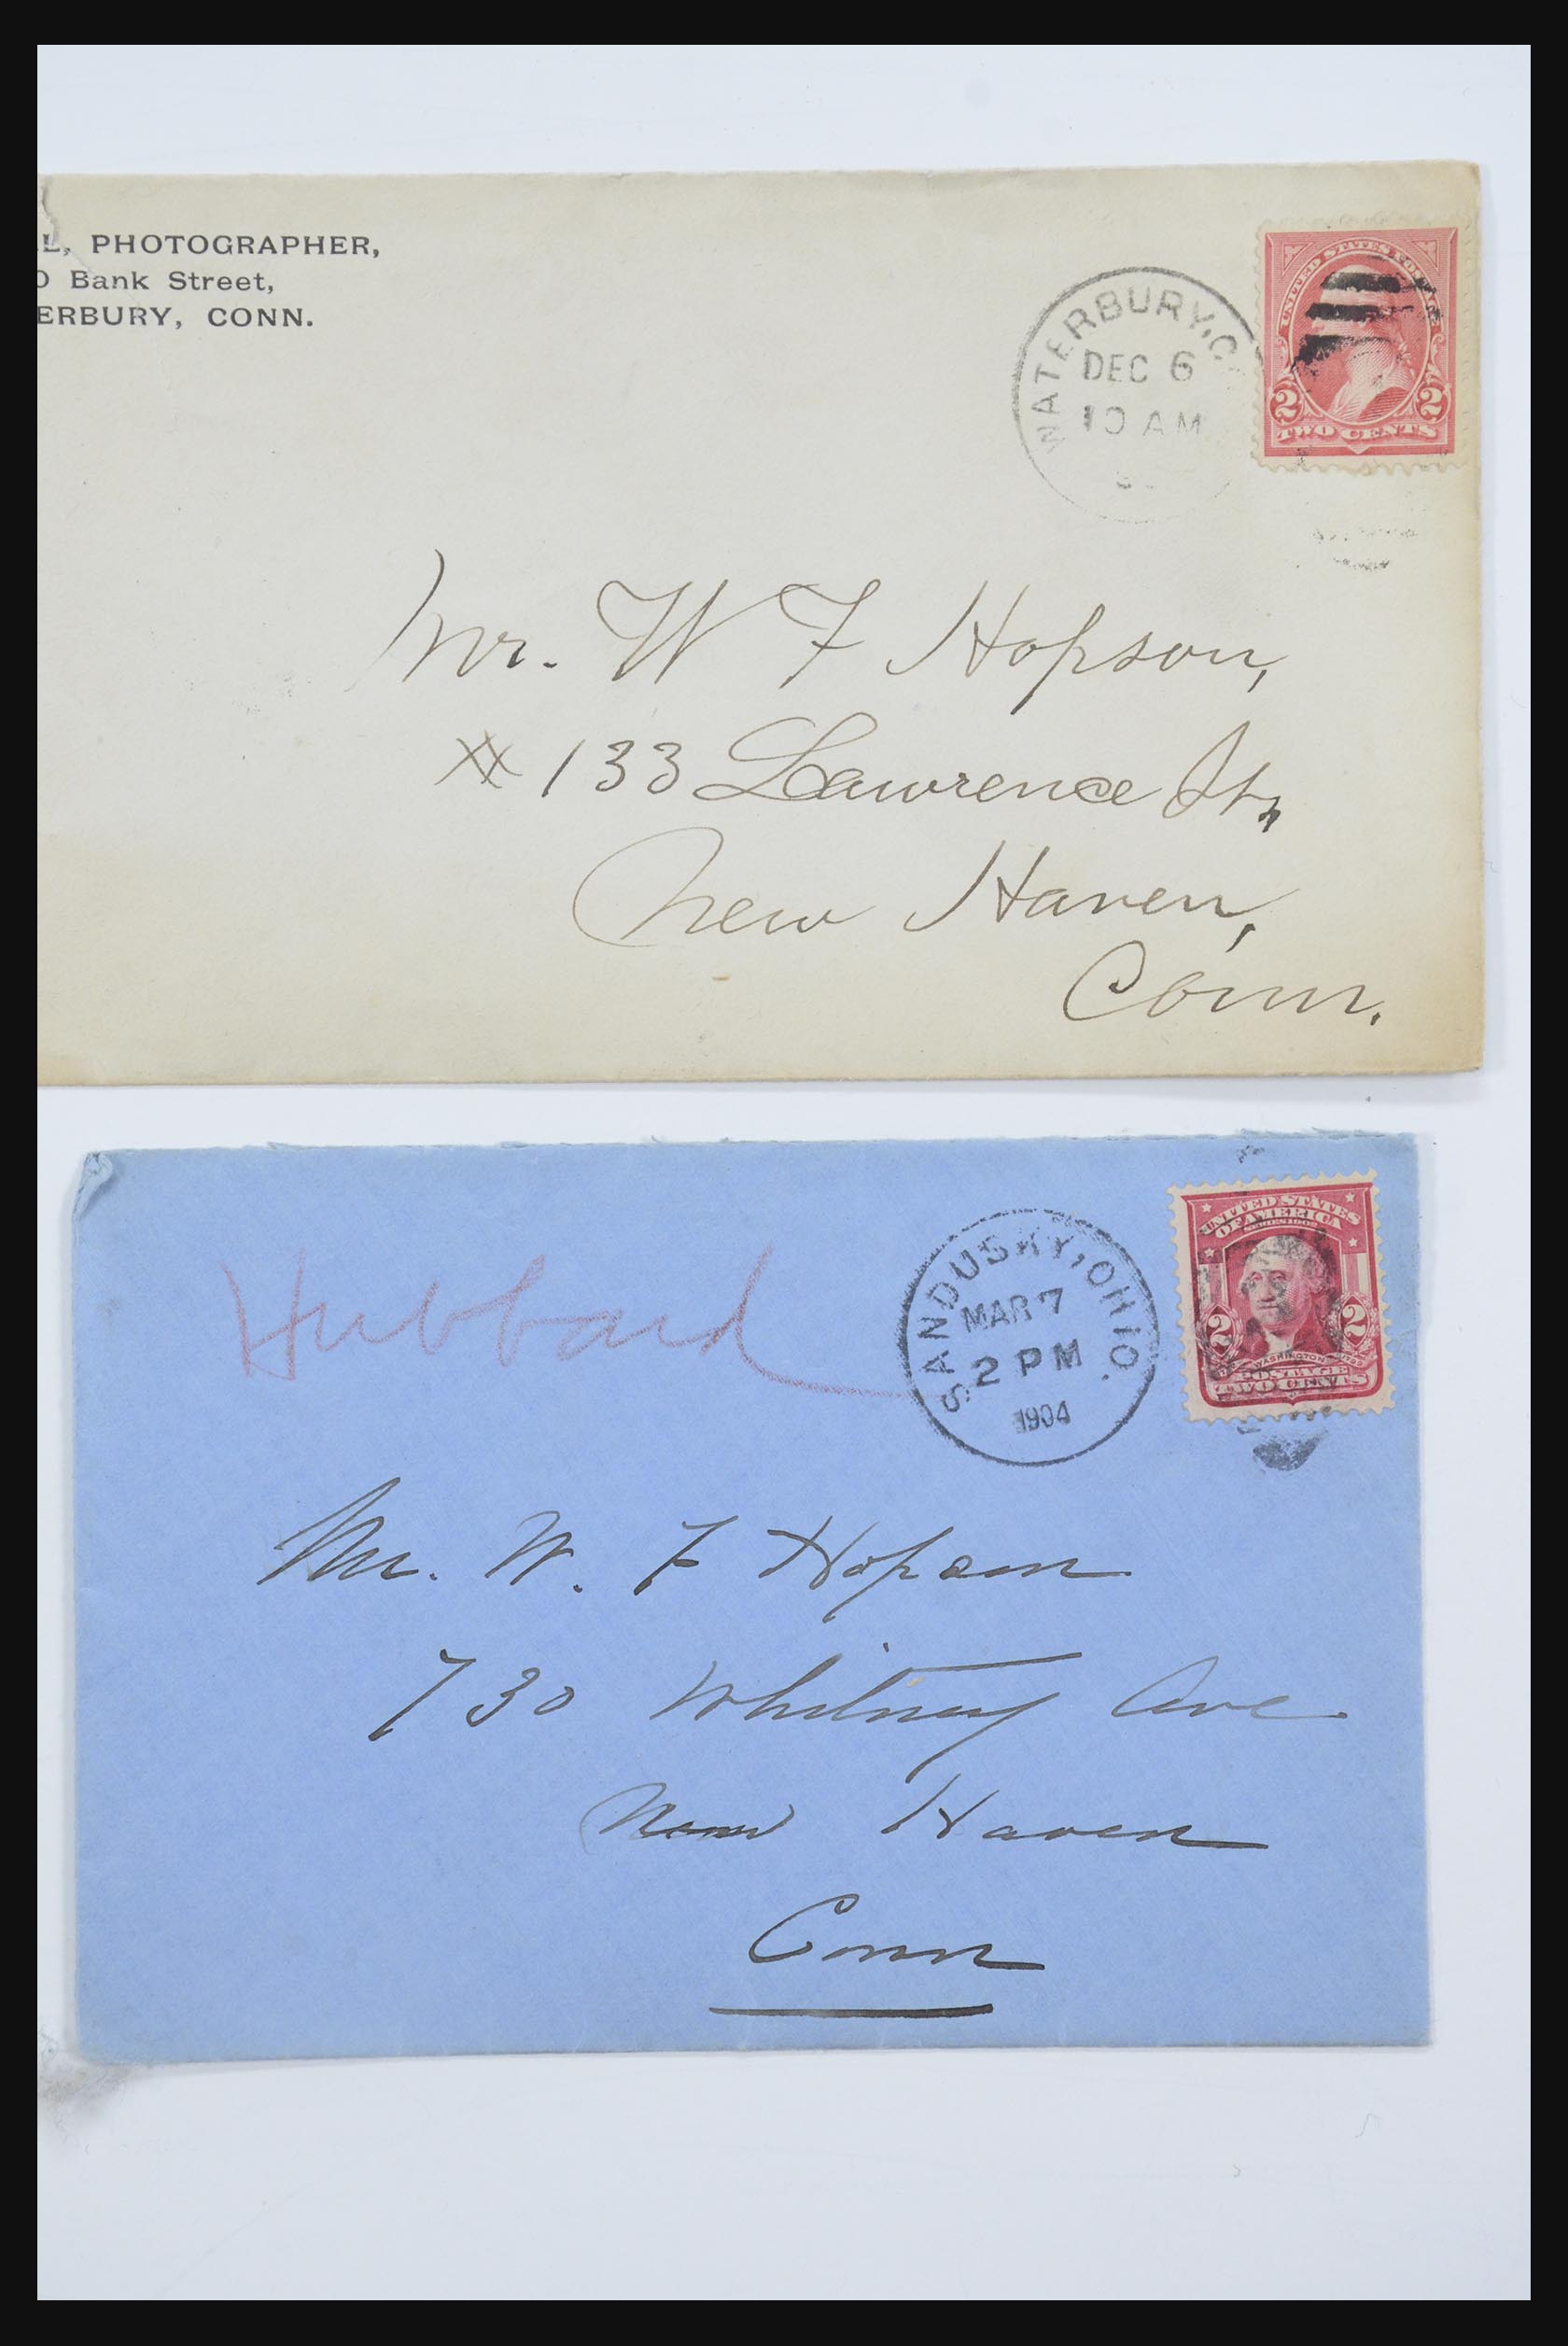 PHOTOGRAPHER,
Bank Street,
ERBURY, CONN.
WATERBURY, C
DEC 6
10 AM
UNITED STATES POSTAGE
2 2
TWO CENTS
Mr. W F Hopson,
# 133 Lawrence St.,
New Haven,
Conn.
Hubbard
SANDUSKY, OHIO.
MAR 7
2 PM
1904
UNITED STATES
OF AMERICA
SERIES 1902
2 2
WASHINGTON
POSTAGE
TWO CENTS
Mr. W. F Hopson
730 Whitney Ave
New Haven
Conn